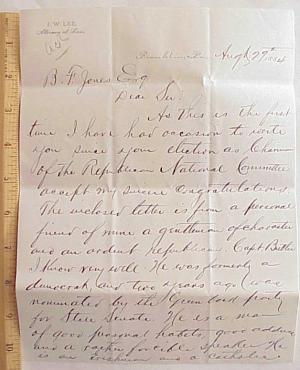 J. W. LEE,
Attorney at Law
Aug 29th 1884
B F Jones Esq
Dear Sir:
As this is the first
time I have had occasion to write
you since your election as Chairman
of the Republican National Committee
accept my sincere Congratulations.
The inclosed letter is from a personal
friend of mine a gentleman of character
and an ardent Republican. Capt
I know very well. He was formerly a
democrat and two years ago was
nominated by the Greenback party
for State Senate. He is a man
of good personal habits, good address
and a rather forcible speaker. He
is an and a Catholic.
1 2 3 4 5 6 7 8 9 10